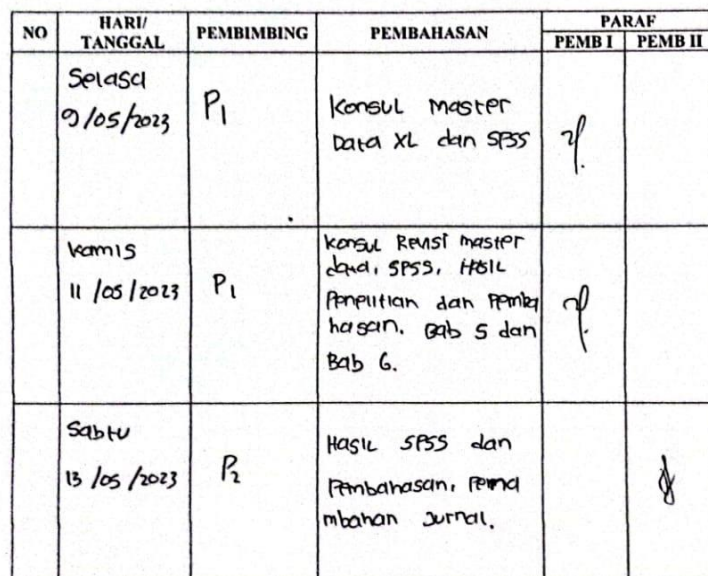 NO HARI/ TANGGAL PEMBIMBING PEMBAHASAN PARAF
PEMB I PEMB II
Selasa
9/05/2023 P1 Konsul Master
Data XL dan SPSS
Kamis
11/05/2023 P1 Konsul Revisi master
data, SPSS, Hasil
Penelitian dan Pemba
hasan. Bab 5 dan
Bab 6.
Sabtu
13/05/2023 P2 Hasil SPSS dan
Pembahasan, Pena
mbahan Jurnal.